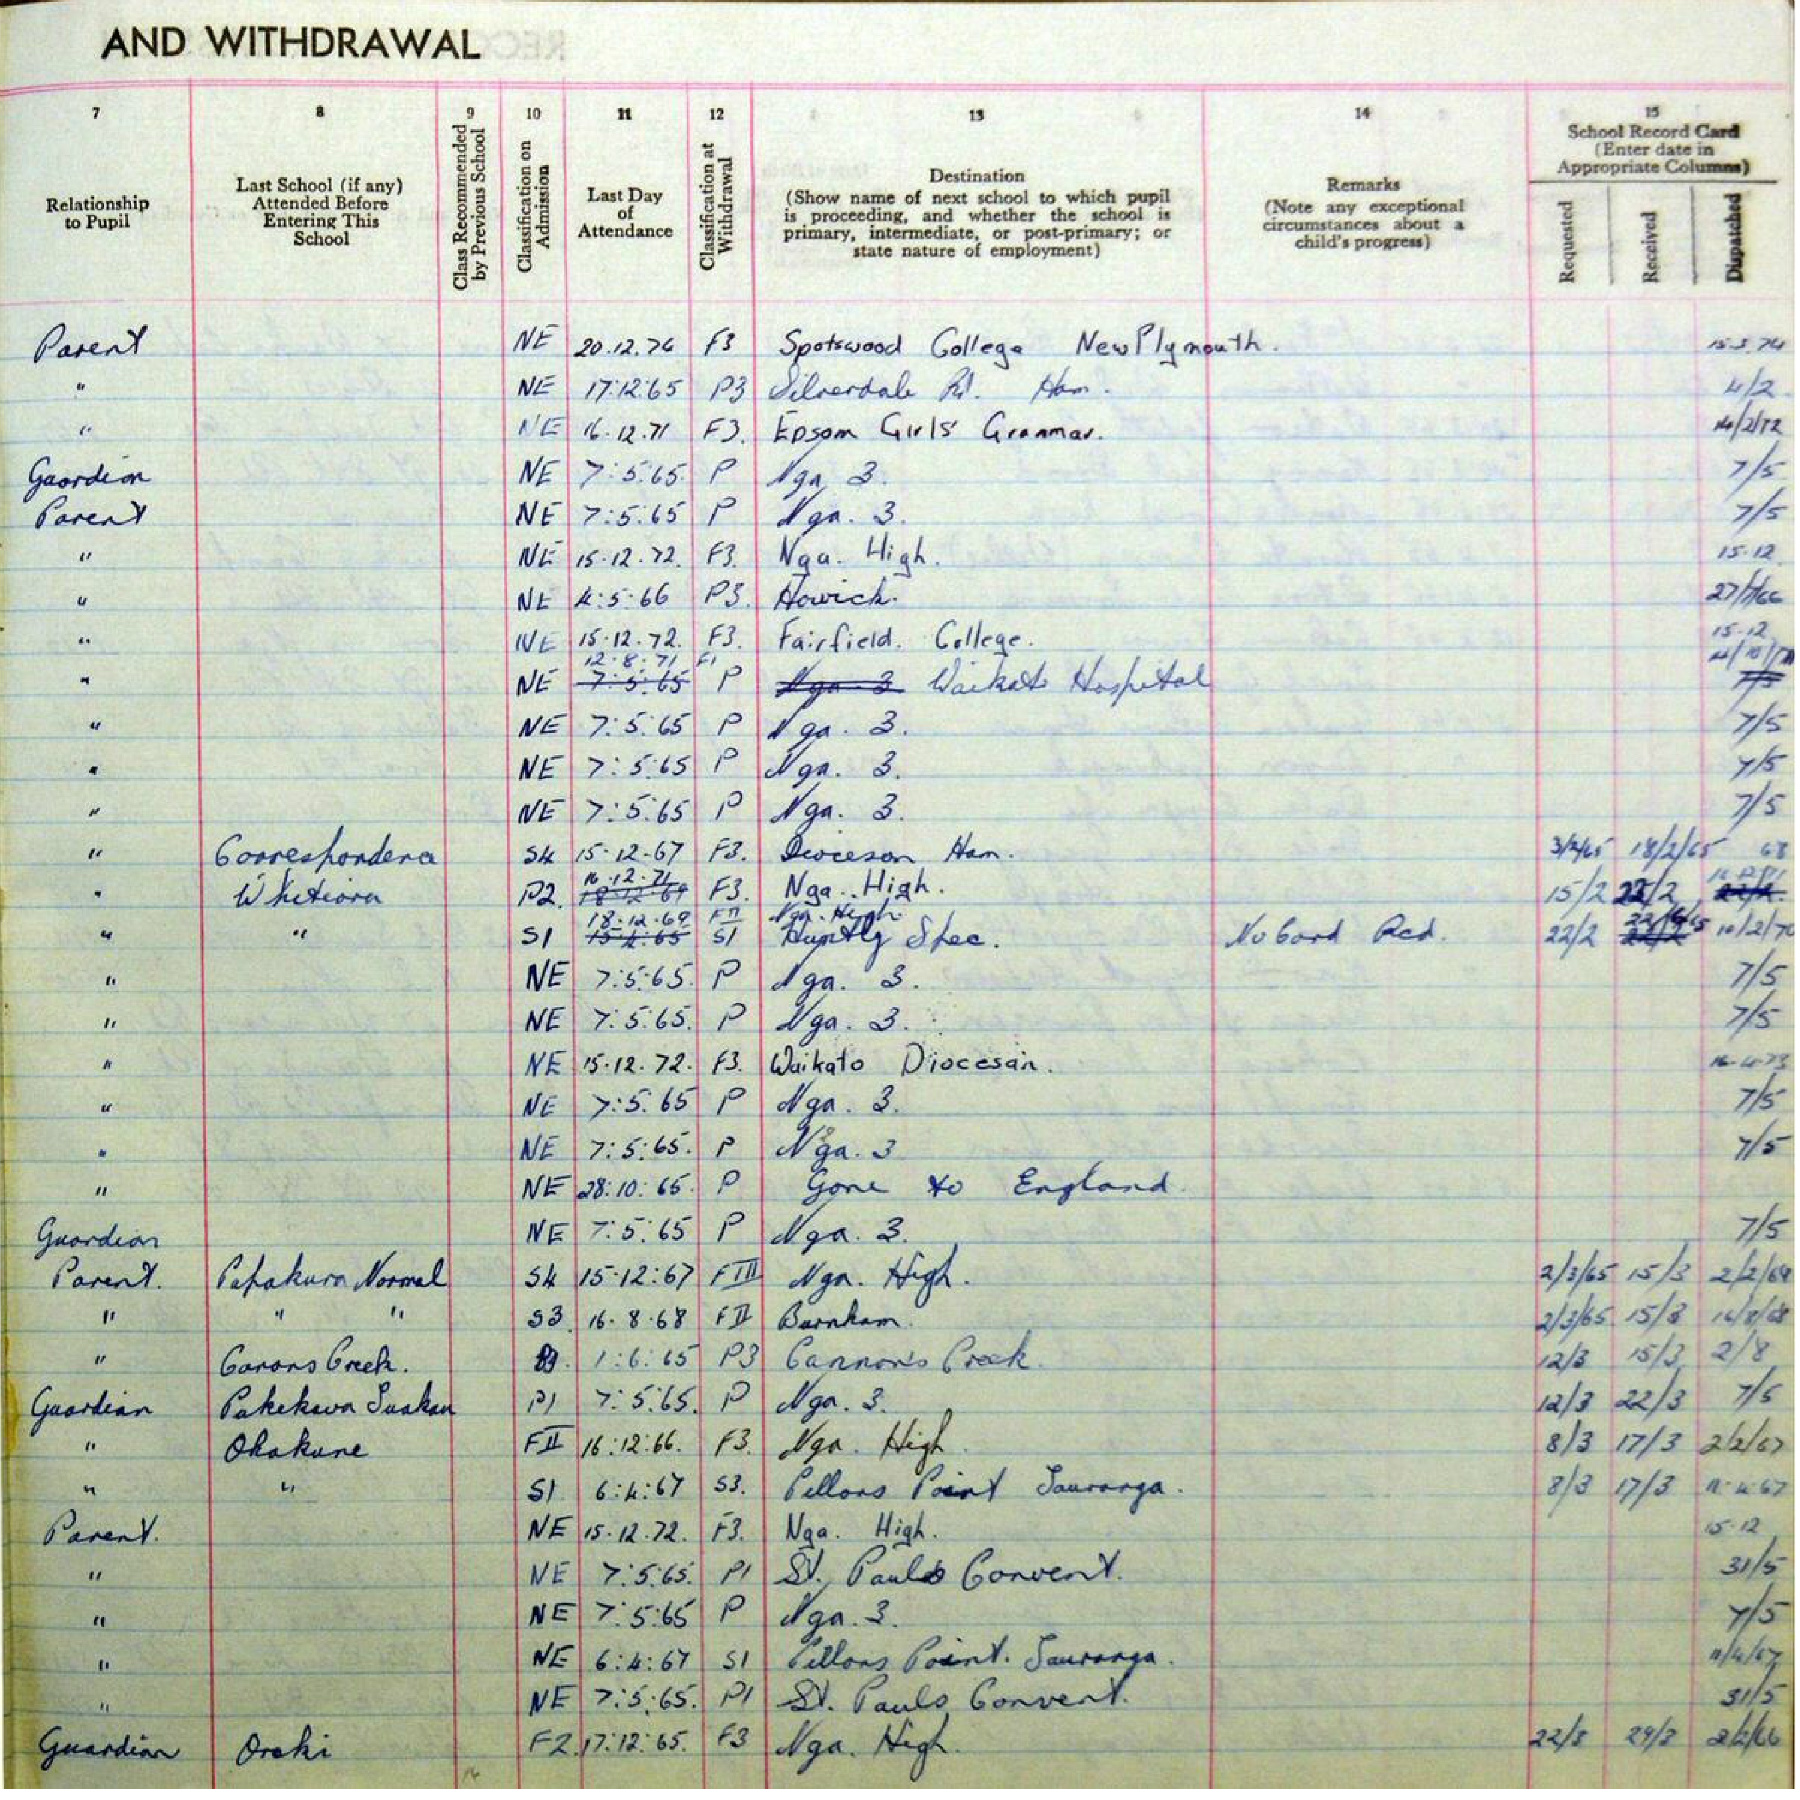 AND WITHDRAWAL
7 8 9 10 11 12 13 14 15
Relationship to Pupil
Last School (if any) Attended Before Entering This School
Class Recommended by Previous School
Classification on Admission
Last Day of Attendance
Classification at Withdrawal
Destination
(Show name of next school to which pupil is proceeding, and whether the school is primary, intermediate, or post-primary; or state nature of employment)
Remarks
(Note any exceptional circumstances about a child's progress)
School Record Card
(Enter date in Appropriate Columns)
Requested Received Dispatched
Parent NE 20.12.74 F3 Spotswood College New Plymouth.
" NE 17:12:65 P3 Silverdale Rd. Ham. 4/2
" NE 16.12.71 F3. Epsom Girls' Grammar. 14/2/72
Guardian NE 7:5:65. P Nga 3. 7/5
Parent NE 7:5:65 P Nga. 3. 7/5
" NE 15.12.72. F3. Nga. High. 15.12
" NE 4:5:66 P3. Howick.
" NE 15.12.72. F3. Fairfield. College. 15.12
12:8:71 F1
" NE 7:5:65 P Nga 3 Waikato Hospital 7/5
" NE 7:5:65 P Nga. 3. 7/5
" NE 7:5:65 P Nga. 3. 7/5
" NE 7:5:65 P Nga. 3. 7/5
" Correspondence S4 15-12-67 F3. Diocesan Ham. 3/2/65 18/2/65 68
16.12.71
" Whitiora P2. 18.12.69 F3. Nga. High. 15/2 22/2
18.12.69 FII Nga. High
" " S1 15:4:65 S1 Huntly Spec. No Card Recd. 22/2 10/2/70
" NE 7:5:65. P Nga. 3. 7/5
" NE 7:5:65. P Nga. 3. 7/5
" NE 15.12.72. F3. Waikato Diocesan. 16.4.73
" NE 7:5:65 P Nga. 3. 7/5
" NE 7:5:65. P Nga. 3 7/5
" NE 28:10:65. P Gone to England.
Guardian NE 7:5:65 P Nga. 3. 7/5
Parent. Papakura Normal S4 15:12:67 FIII Nga. High. 2/3/65 15/3 2/2/68
" " " S3 16.8.68 FII Burnham. 2/3/65 15/3 16/8/68
" Canons Creek. 1:6:65 P3 Cannon's Creek 12/3 15/3 2/8
Guardian Pukekawa Tuakau P1 7:5:65. P Nga. 3. 12/3 22/3 7/5
" Ohakune FII 16:12:66. F3. Nga. High 8/3 17/3 2/2/67
" " S1 6:4:67 S3. Pillans Point Tauranga. 8/3 17/3 11.4.67
Parent. NE 15.12.72. F3. Nga. High. 15.12
" NE 7:5:65. P1 St. Pauls Convent. 31/5
" NE 7:5:65 P Nga. 3. 7/5
" NE 6:4:67 S1 Pillans Point. Tauranga. 11/4/67
" NE 7:5:65. P1 St. Pauls Convent. 31/5
Guardian Oraki F2 17:12:65. F3 Nga. High. 22/3 29/3 2/2/66